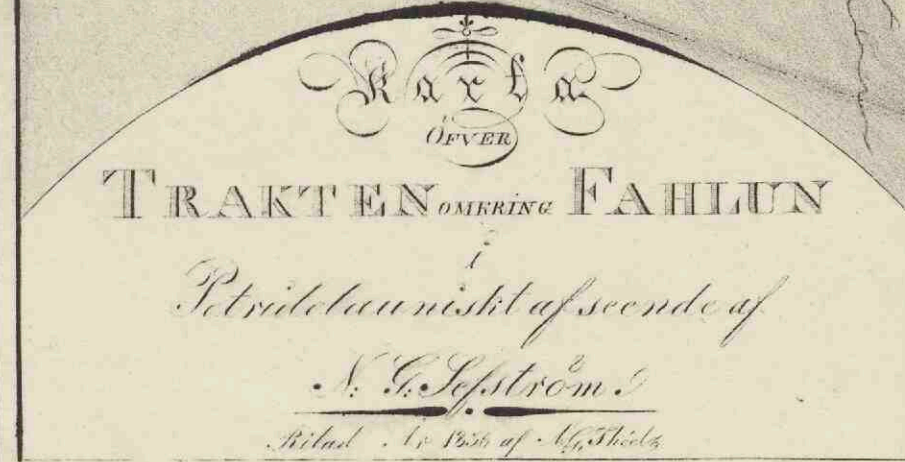 Karta
ÖFVER
TRAKTEN OMKRING FAHLUN
i
Petridelauniskt afseende af
N: G: Sefström.
Ritad År 1836 af